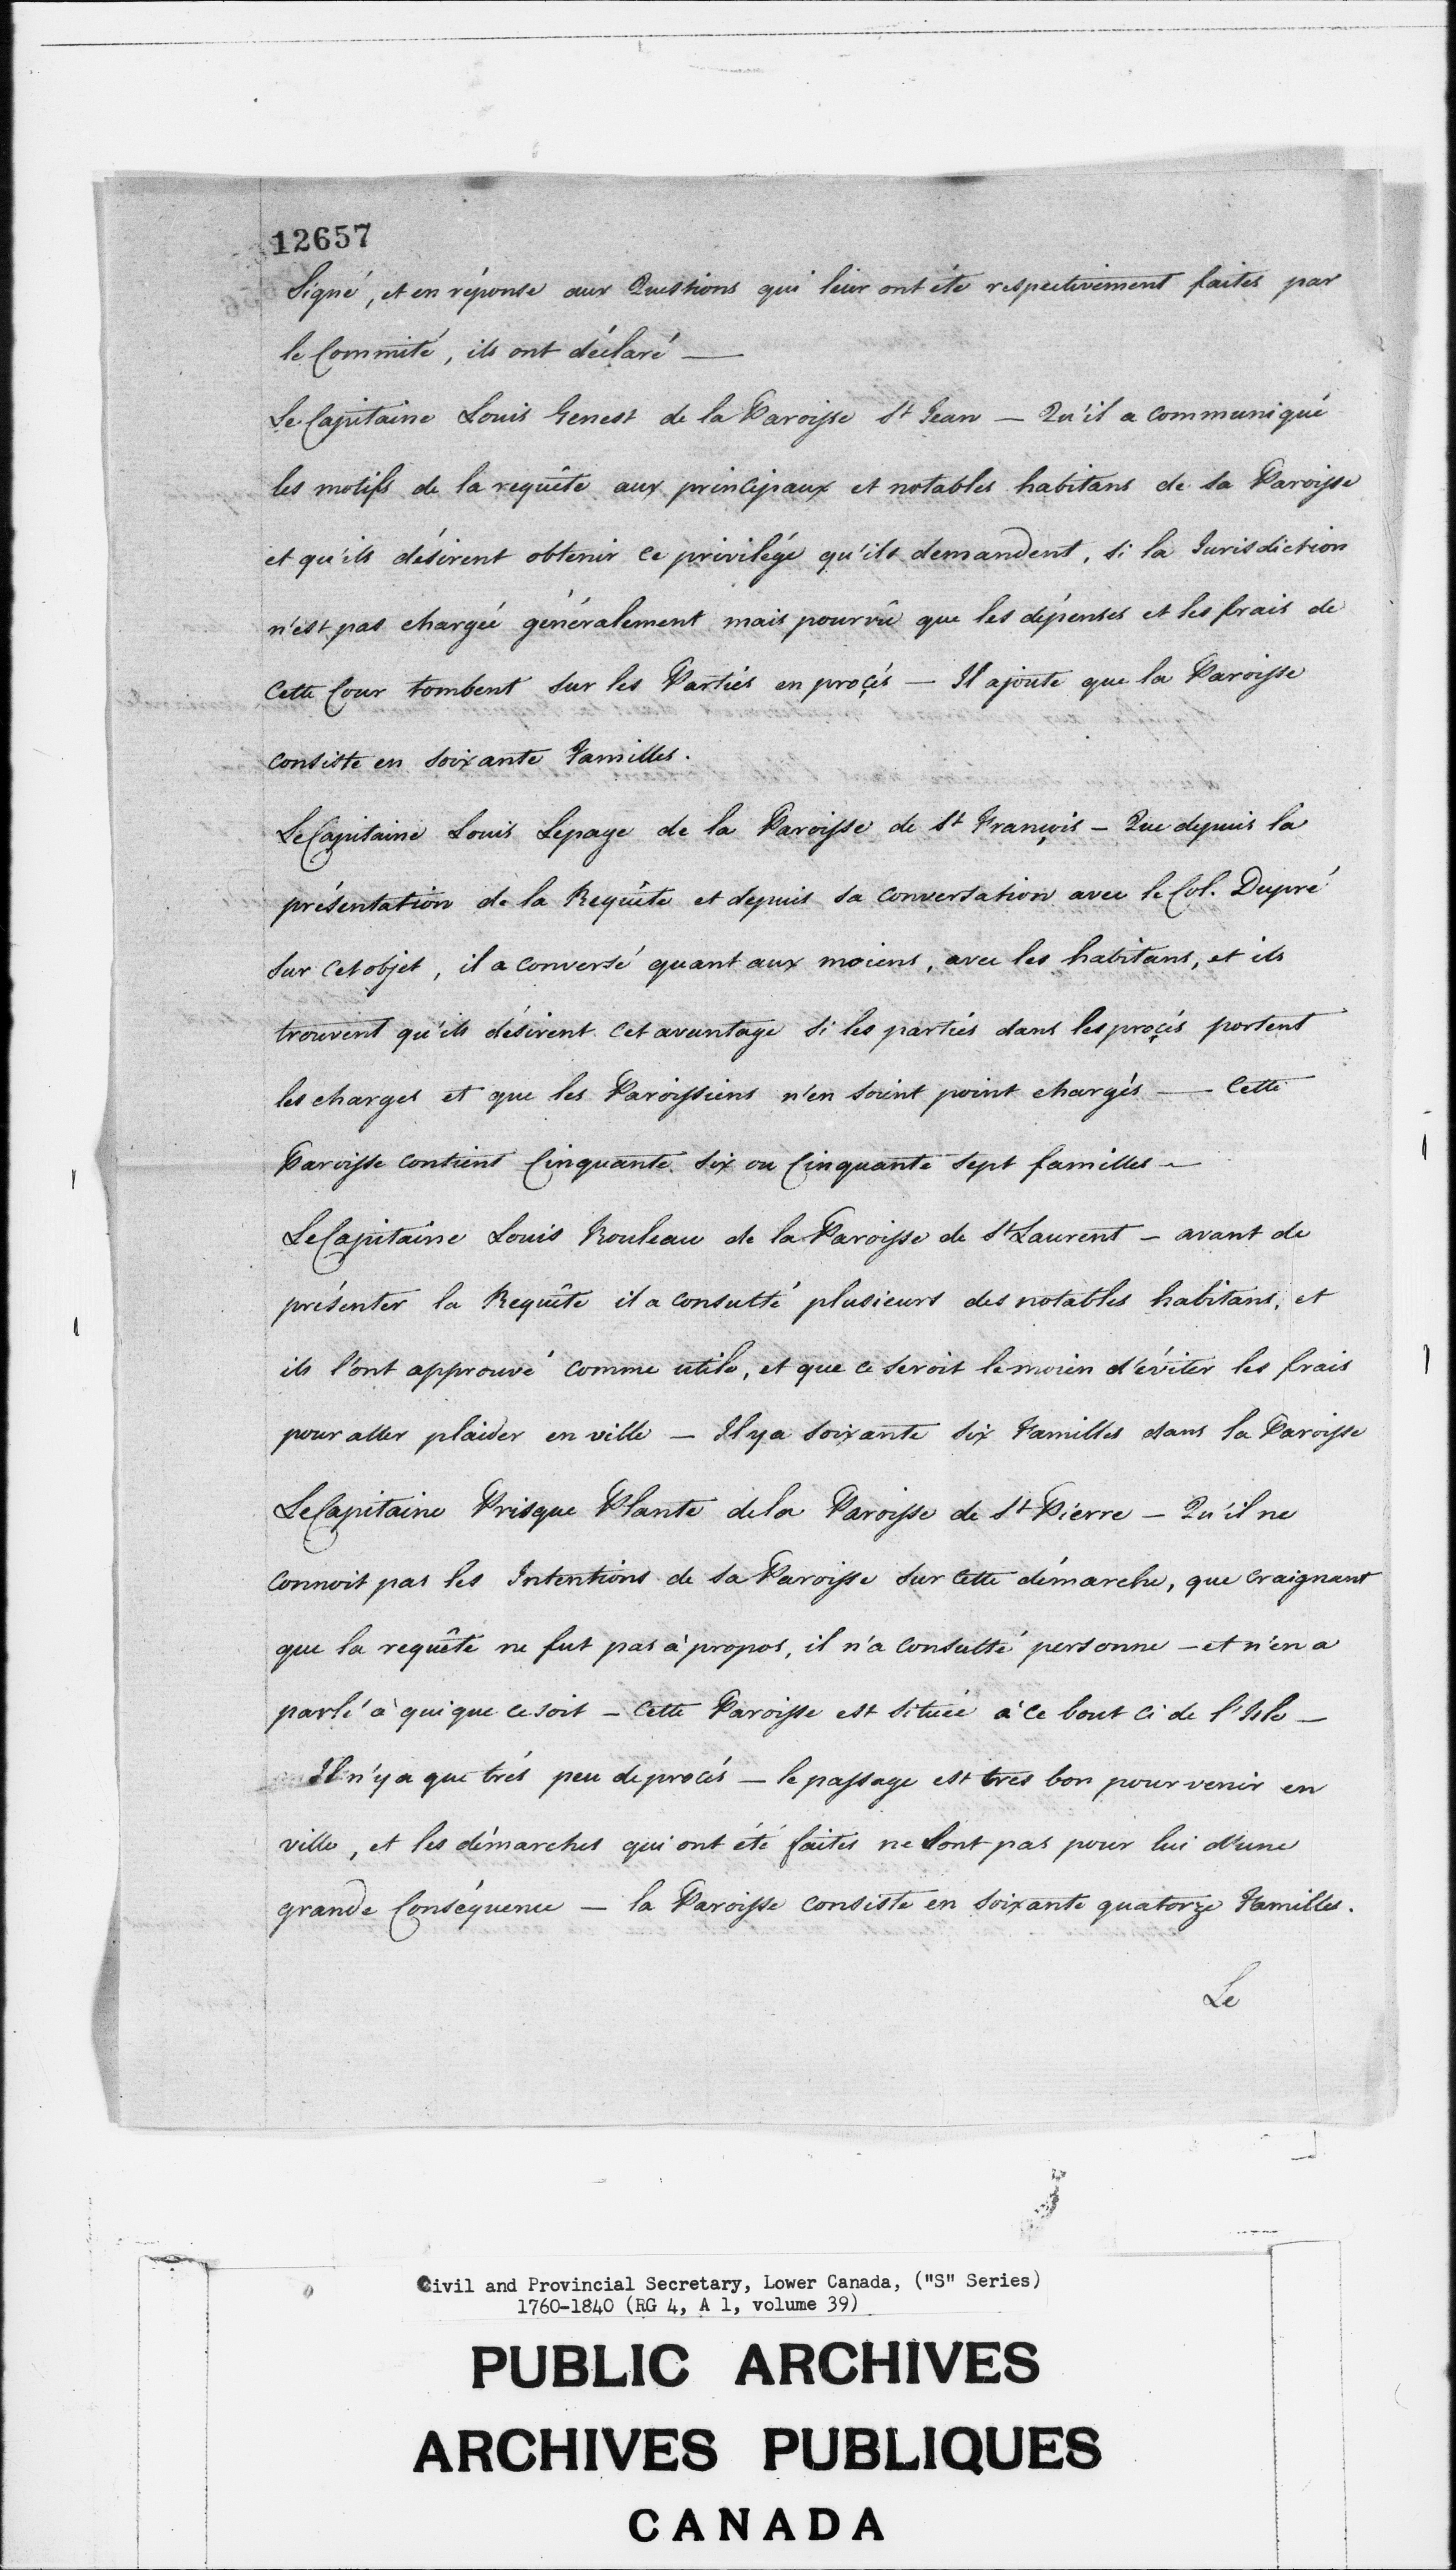 12657
Signé, et en réponse aux Questions qui leur ont été respectivement faites par
le Committé, ils ont déclaré —
Le Capitaine Louis Genest de la Paroisse St Jean — Qu'il a communiqué
les motifs de la requête aux principaux et notables habitans de sa Paroisse
et qu'ils désirent obtenir ce privilége qu'ils demandent, si la Jurisdiction
n'est pas chargée généralement mais pourvû que les dépenses et les frais de
cette Cour tombent sur les Parties en procès — Il ajoute que la Paroisse
consiste en soixante Familles.
Le Capitaine Louis Lepage de la Paroisse de St François — Que depuis la
présentation de la Requête et depuis sa conversation avec le Col. Dupré
sur cet objet, il a conversé quant aux moiens, avec les habitans, et ils
trouvent qu'ils désirent cet avantage si les parties dans les procès portent
les charges et que les Paroissiens n'en soient point chargés — Cette
Paroisse contient Cinquante six ou Cinquante sept familles —
Le Capitaine Louis Rouleau de la Paroisse de St Laurent — avant de
présenter la Requête il a consulté plusieurs des notables habitans, et
ils l'ont approuvé comme utile, et que ce seroit le moien d'éviter les frais
pour aller plaider en ville — Il y a soixante six Familles dans la Paroisse
Le Capitaine Prisque Plante de la Paroisse de St Pierre — Qu'il ne
connoit pas les Intentions de sa Paroisse sur cette démarche, que craignant
que la requête ne fut pas à propos, il n'a consulté personne — et n'en a
parlé à qui que ce soit — Cette Paroisse est située à ce bout ci de l'Isle —
Il n'y a que très peu de procès — le passage est très bon pour venir en
ville, et les démarches qui ont été faites ne sont pas pour lui d'une
grande Conséquence — la Paroisse consiste en soixante quatorze Familles.
Le
Civil and Provincial Secretary, Lower Canada, ("S" Series)
1760-1840 (RG 4, A 1, volume 39)
PUBLIC ARCHIVES
ARCHIVES PUBLIQUES
CANADA